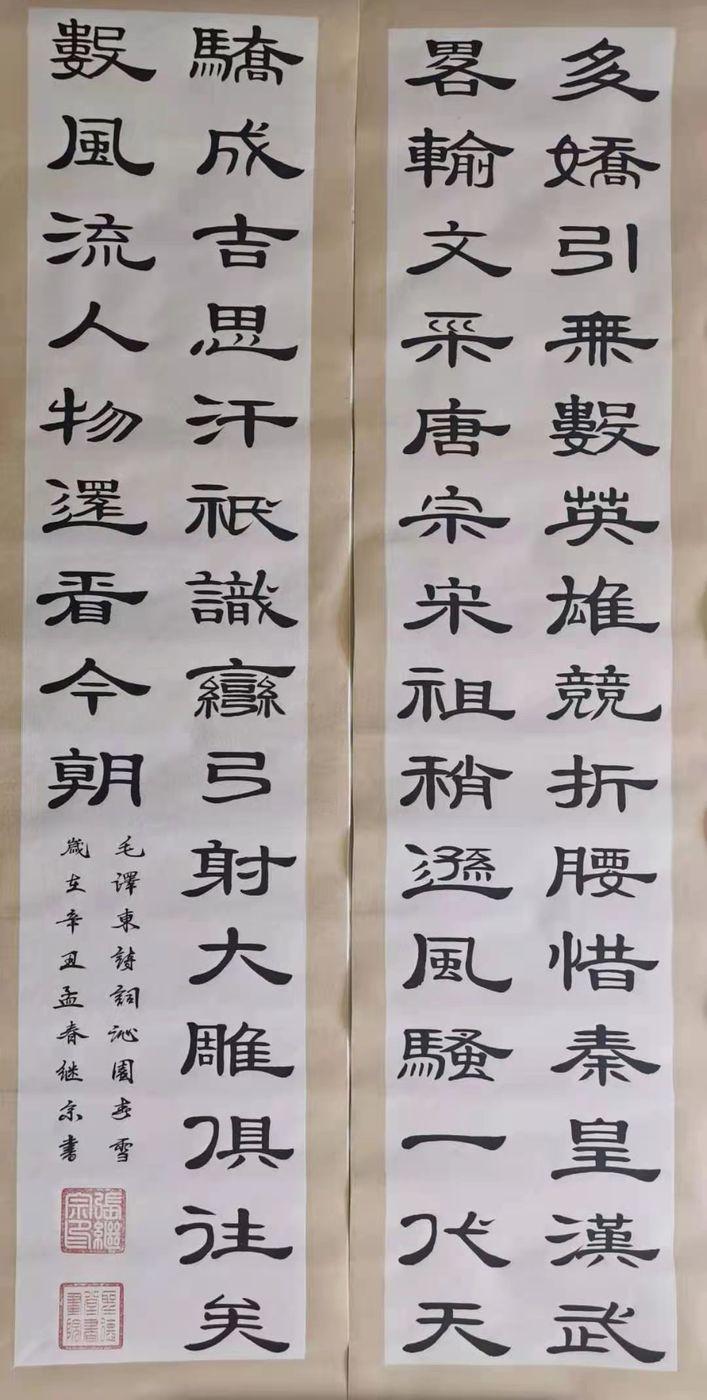 多嬌引無數英雄競折腰惜秦皇漢武
畧輸文采唐宗宋祖稍遜風騷一代天
驕成吉思汗祇識彎弓射大雕俱往矣
數風流人物還看今朝
毛澤東詩詞沁園春雪
歲在辛丑孟春继宗書
張繼宗印